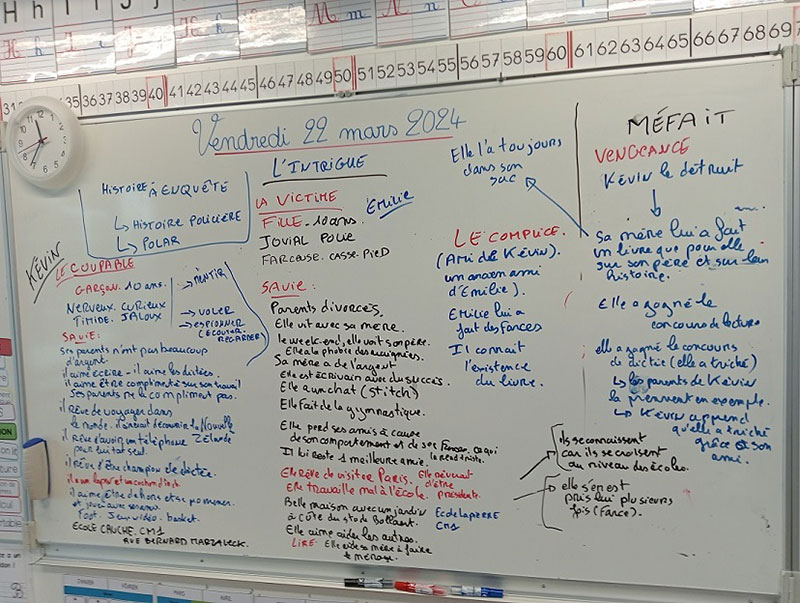 Hh
35 36 37 38 39 40 41 42 43 44 45 46 47 48 49 50 51 52 53 54 55 56 57 58 59 60 61 62 63 64 65 66 67 68 69
Vendredi 22 mars 2024
L'INTRIGUE
HISTOIRE À ENQUÊTE
↳ HISTOIRE POLICIÈRE
↳ POLAR
KÉVIN
LE COUPABLE
GARÇON. 10 ans.
NERVEUX. CURIEUX
TIMIDE. JALOUX
→ MENTIR
→ VOLER
→ ESPIONNER
(ÉCOUTER.
REGARDER)
SA VIE:
Ses parents n'ont pas beaucoup
d'argent.
il aime écrire - il aime les dictées.
il aime être complimenté sur son travail
Ses parents ne le compliment pas.
il rêve de voyager dans
le monde. il aimerait découvrir la Nouvelle
Zélande
il rêve d'avoir un téléphone
pour lui tout seul.
il rêve d'être champion de dictée.
il a un lapin et un cochon d'inde
il aime être dehors et se promener
et jouer avec
foot. Jeux vidéo. basket.
ECOLE CAUCHE. CM1
RUE BERNARD MARZALECK.
LA VICTIME
EMILIE
FILLE. 10 ans.
JOVIAL POLIE
FARCEUSE. CASSE-PIED
SA VIE:
Parents divorcés.
Elle vit avec sa mère.
le week-end, elle voit son père.
Elle a la phobie des araignées.
Sa mère a de l'argent
Elle est écrivain avec du succès.
Elle a un chat (Stitch)
Elle fait de la gymnastique.
Elle perd ses amis à cause
de son comportement et de ses farces. ce qui
la rend triste.
Il lui reste 1 meilleure amie.
Elle rêve de visiter Paris. Elle rêverait
d'être
présidente.
Elle travaille mal à l'école.
Belle maison avec un jardin
à côté du stade Bollaert.
Ecole Laperre
CM1
Elle aime aider les autres.
LIRE. Elle aide sa mère à faire
le ménage.
Elle l'a toujours
dans son
sac
LE COMPLICE.
(AMI DE KÉVIN).
un ancien ami
d'Émilie).
Émilie lui a
fait des farces
Il connait
l'existence
du livre.
ils se connaissent
car ils se croisent
au niveau des écoles.
elle s'en est
pris lui plusieurs
fois (farce).
MÉFAIT
VENGEANCE
KÉVIN le détruit
Sa mère lui a fait
un livre que pour elle
sur son père et sur leur
histoire.
Elle a gagné le
concours de lecture
elle a gagné le concours
de dictée (elle a triché)
↳ les parents de Kévin
la prennent en exemple.
↳ Kévin apprend
qu'elle a triché
grâce à son
ami.